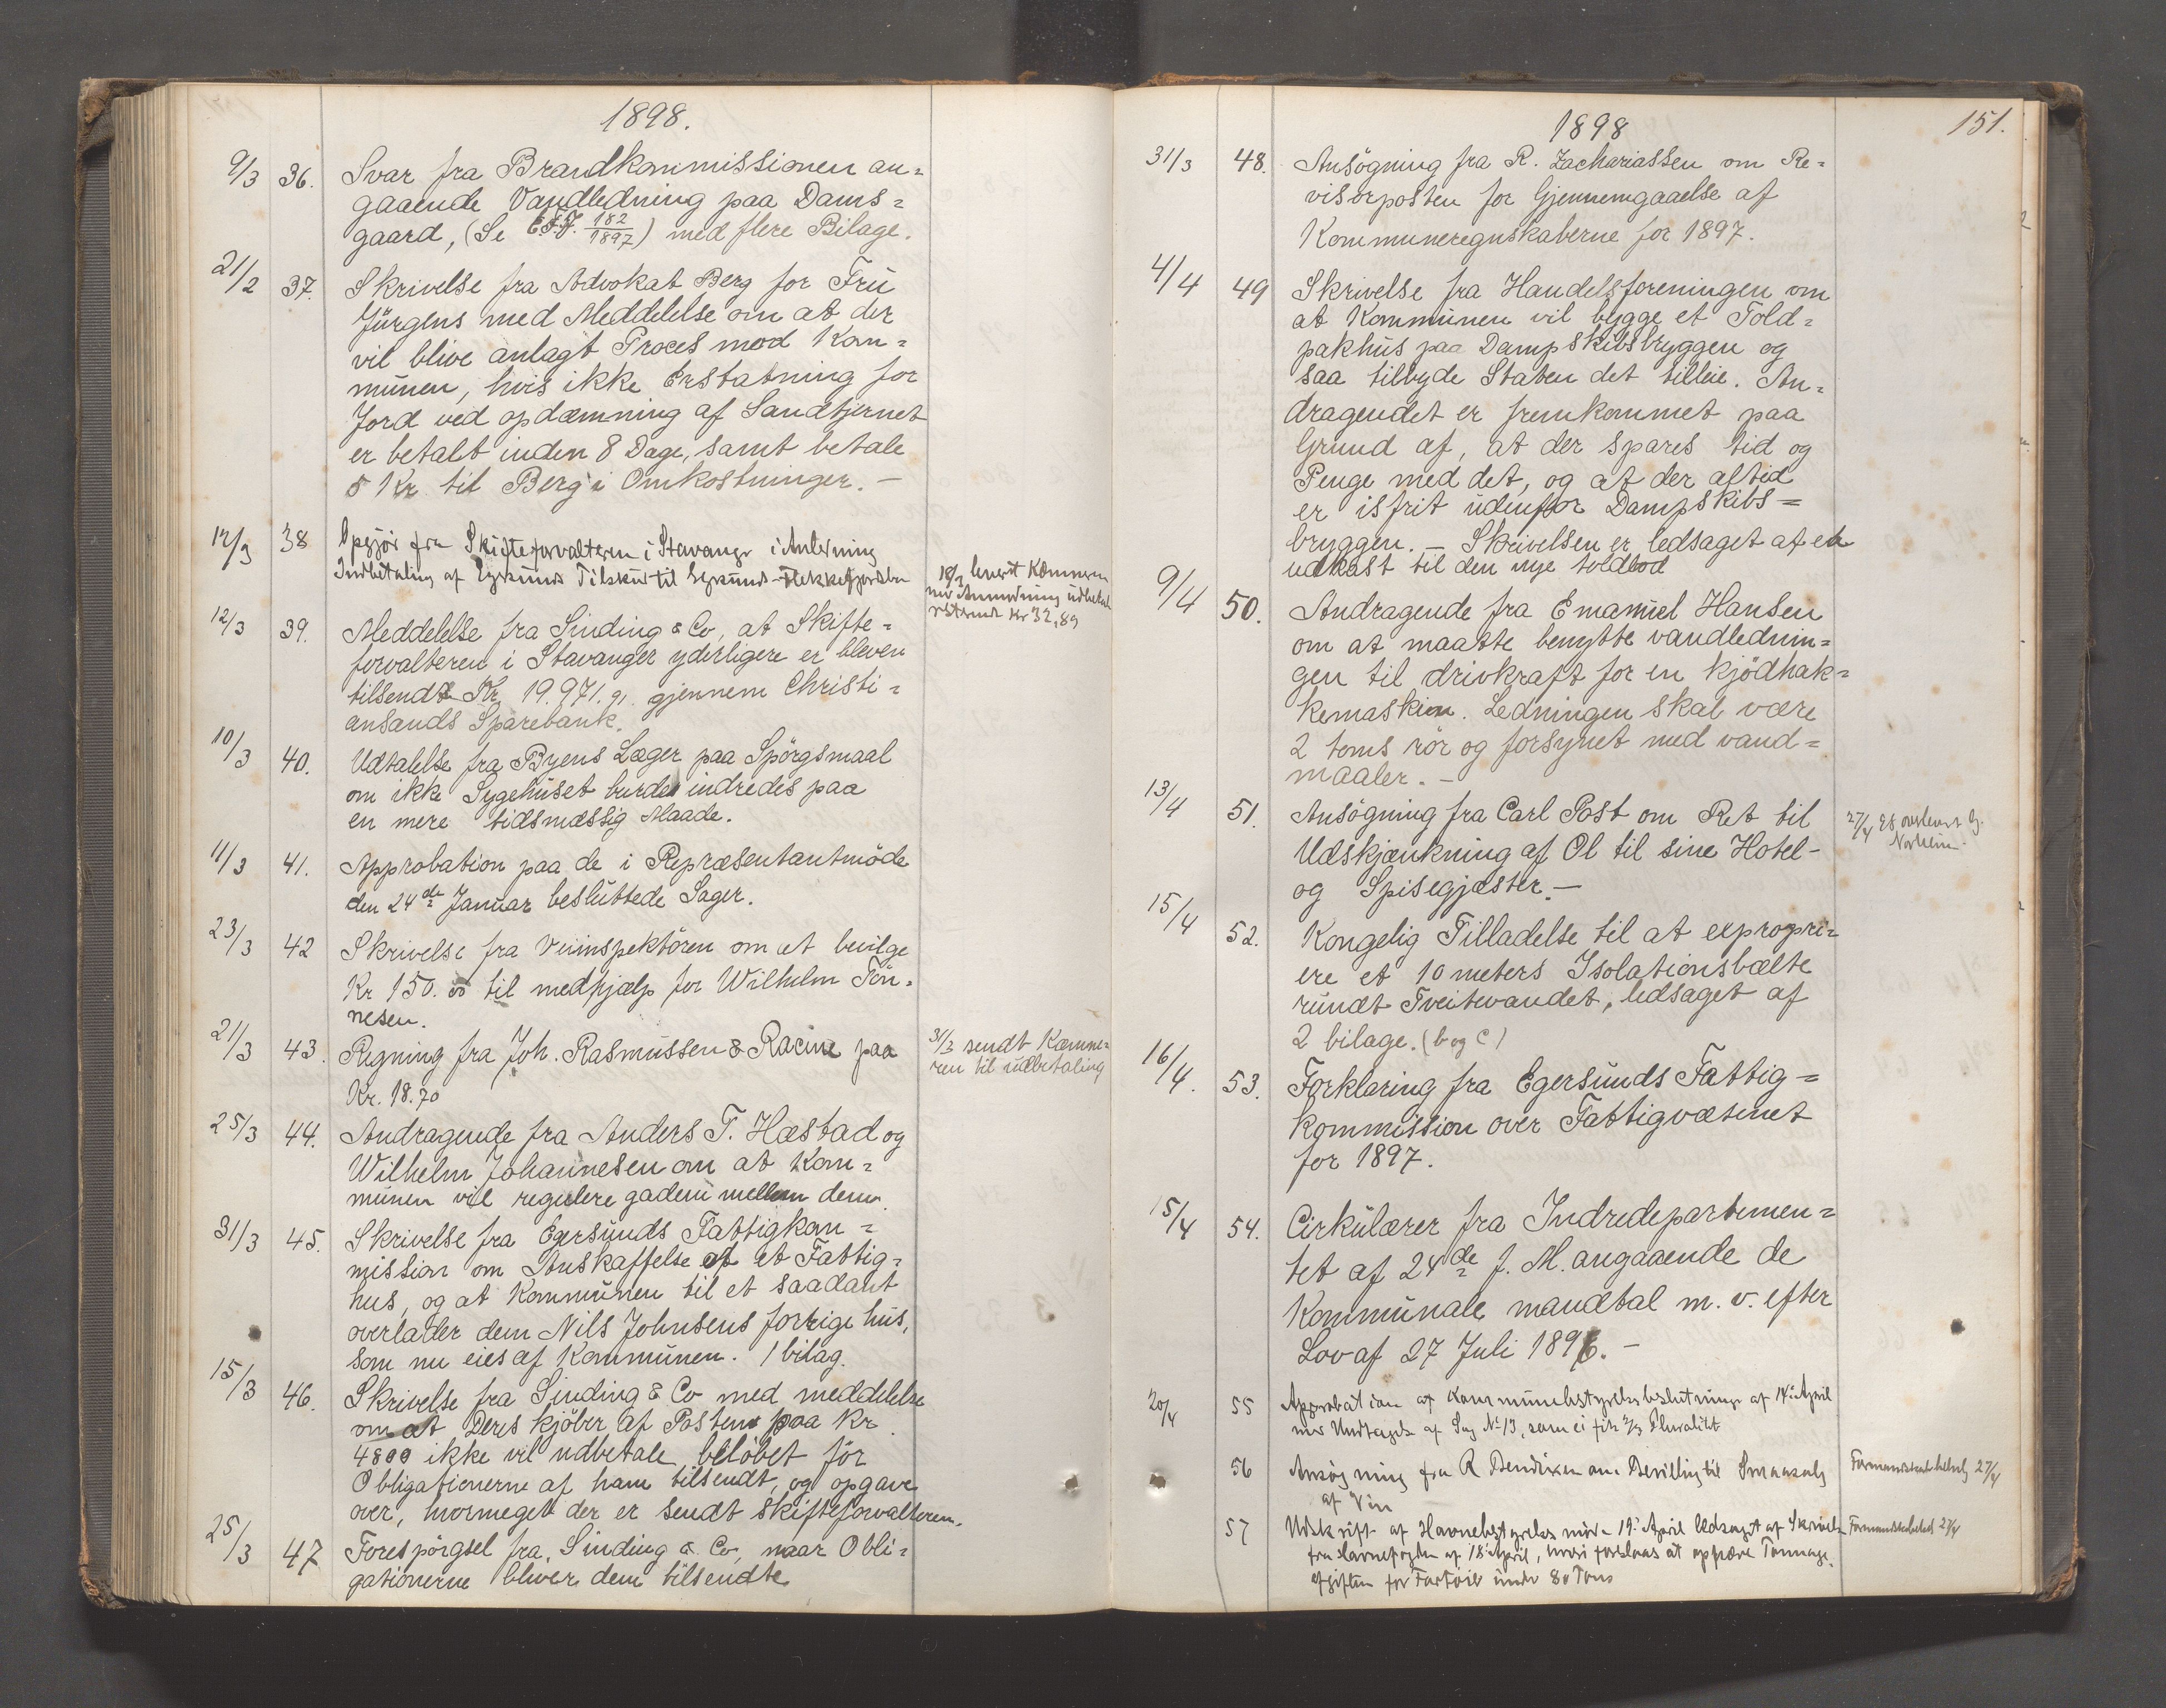 1898.
9/3 36. Svar fra Brandkommissionen an=
gaaende Vandledning paa Dams=
gaard, (Se E.F.J. 182/1897) med flere Bilage.
21/2 37. Skrivelse fra Advokat Berg for Fru
Jürgens med Meddelelse om at der
vil blive anlagt Proces mod Kom=
munen, hvis ikke Erstatning for
Jord ved opdæmning af Sandtjernet
er betalt inden 8 Dage, samt betale
5 Kr til Berg i Omkostninger. —
12/3 38 Opgjör fra Skifteforvalteren i Stavanger i Anledning
Indbetaling af Egersunds Tilskud til Egersund-Flekkefjordsbn
18/3 leveret Kæmneren
med Anmodning udbetale
resterende Kr 32,89
12/3 39. Meddelelse fra Sinding & Co, at Skifte=
forvalteren i Stavanger yderligere er bleven
tilsendt Kr 19.971.91 gjennem Christi=
ansands Sparebank.
10/3 40. Udtalelse fra Byens Læger paa Spörgsmaal
om ikke Sygehuset burde indredes paa
en mere tidsmæssig Maade.
11/3 41. Approbation paa de i Repræsentantmöde
den 24de Januar besluttede Sager.
23/3 42 Skrivelse fra Veiinspektören om at bevilge
Kr 150.00 til medhjælp for Wilhelm Tön=
nesen.
21/3 43. Regning fra Joh. Rasmussen & Racine paa
Kr. 18.70
31/3 sendt Kæmne=
ren til udbetaling
25/3 44. Andragende fra Anders T. Hæstad og
Wilhelm Johannesen om at Kom=
munen vil regulere gaden mellem dem.
31/3 45. Skrivelse fra Egersunds Fattigkom=
mission om Anskaffelse af et Fattig=
hus, og at Kommunen til et saadant
overlader dem Nils Johnsens forrige hus,
som nu eies af Kommunen. 1 bilag.
15/3 46. Skrivelse fra Sinding & Co med meddelelse
om at Deres kjöber af Posten paa Kr
4800 ikke vil udbetale belöbet för
Obligationerne af ham tilsendt, og opgave
over, hvormeget der er sendt skifteforvalteren.
25/3 47 Forespörgsel fra Sinding & Co, naar Obli=
gationerne bliver dem tilsendte
1898
151.
31/3 48. Ansögning fra R. Zachariassen om Re=
visorposten for Gjennemgaaelse af
Kommuneregnskaberne for 1897.
4/4 49 Skrivelse fra Handelsforeningen om
at Kommunen vil bygge et Told=
pakhus paa Dampskibsbryggen og
saa tilbyde Staten det tilleie. An=
dragendet er fremkommet paa
Grund af, at der spares tid og
Penge med det, og at der altid
er isfrit udenfor Dampskibs=
bryggen. — Skrivelsen er ledsaget af et
udkast til den nye toldbod
9/4 50. Andragende fra Emanuel Hansen
om at maatte benytte vandlednin=
gen til drivkraft for en kjödhak=
kemaskin. Ledningen skal være
2 toms rör og forsynet med vand=
maaler. —
13/4 51. Ansögning fra Carl Post om Ret til
Udskjænkning af Öl til sine Hotel-
og Spisegjæster. —
27/4 overlevert
15/4 52. Kongelig Tilladelse til at expropri=
ere et 10 meters Isolationsbælte
rundt Tveitevandet, ledsaget af
2 bilage. (b og c)
16/4. 53. Forklaring fra Egersunds Fattig=
kommission over Fattigvæsenet
for 1897.
15/4 54. Cirkulærer fra Indredepartemen=
tet af 24de f. M. angaaende de
Kommunale mandtal m. v. efter
Lov af 27 Juli 1896. —
20/4 55 Approbation af Kommunebestyrelsesbeslutninger af 14de April
med Undtagelse af Sag No 13, som ei fik 2/3 Pluralitet
56 Ansögning fra R Bendixen om Bevilling til Smaasalg
af Vin
Formandskabet 27/4
57 Udskrift af Havnebestyrelses möde 19de April ledsaget af Skrivelse
fra Havnefogden af 18de April, hvori foreslaaes at ophæve Tonnage
afgiften for Fartöier under 80 Tons
Formandskabet 27/4